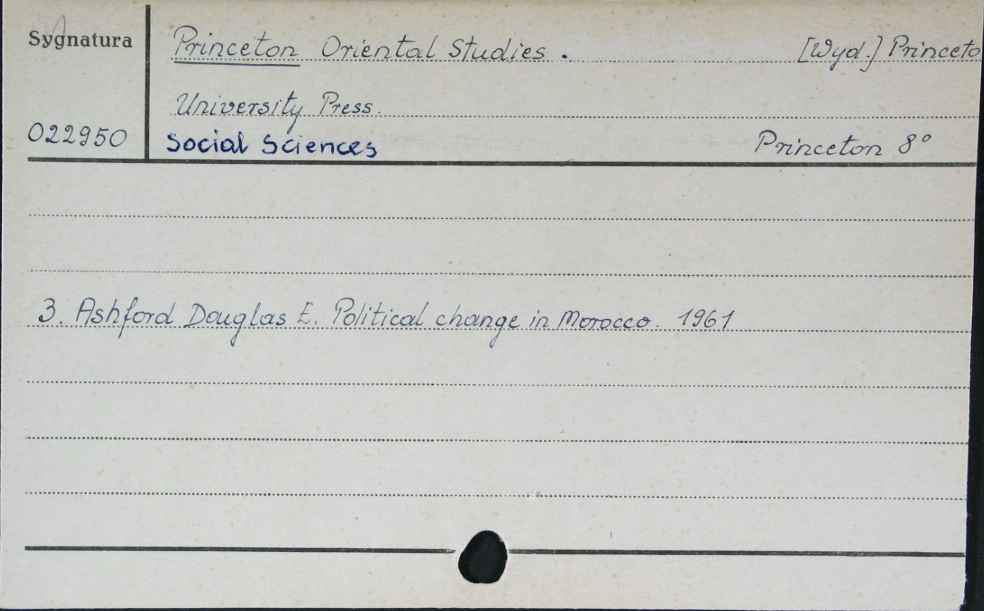 Sygnatura
Princeton Oriental Studies. [Wyd.] Princeto
University Press.
022950 Social Sciences Princeton 8°
3. Ashford Douglas E. Political change in Morocco. 1961